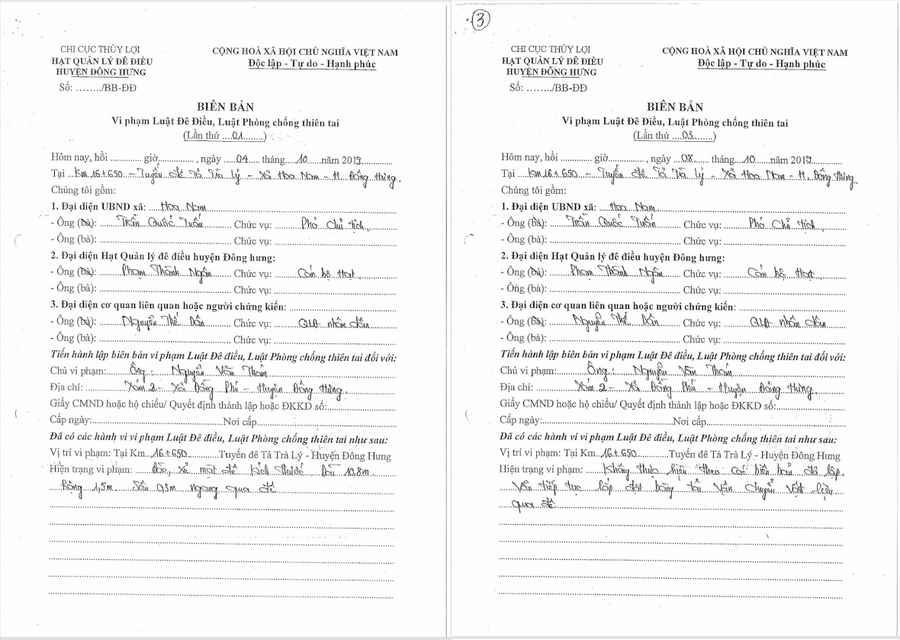 CHI CỤC THỦY LỢI
HẠT QUẢN LÝ ĐÊ ĐIỀU
HUYỆN ĐÔNG HƯNG
Số: ......../BB-ĐĐ
CỘNG HOÀ XÃ HỘI CHỦ NGHĨA VIỆT NAM
Độc lập - Tự do - Hạnh phúc
BIÊN BẢN
Vi phạm Luật Đê Điều, Luật Phòng chống thiên tai
(Lần thứ ....01........)
Hôm nay, hồi ............ giờ............. , ngày ....04..... tháng....10....năm 2019............
Tại ...Km 16+650 - Tuyến đê Tả Trà Lý - Xã Hoa Nam - H. Đông Hưng.
Chúng tôi gồm:
1. Đại diện UBND xã: ....Hoa Nam
- Ông (bà): ....Trần Quốc Tuấn.... Chức vụ: ....Phó Chủ tịch....
- Ông (bà): .................... Chức vụ: ....................
2. Đại diện Hạt Quản lý đê điều huyện Đông hưng:
- Ông (bà): ....Phạm Thành Ngân.... Chức vụ: ....Cán bộ Hạt....
- Ông (bà): .................... Chức vụ: ....................
3. Đại diện cơ quan liên quan hoặc người chứng kiến:
- Ông (bà): ....Nguyễn Thế Dân.... Chức vụ: ....QLĐ nhân dân....
- Ông (bà): .................... Chức vụ: ....................
Tiến hành lập biên bản vi phạm Luật Đê điều, Luật Phòng chống thiên tai đối với:
Chủ vi phạm: ....Ông: Nguyễn Văn....
Địa chỉ: ....Xóm 2 - Xã Đông Phú - Huyện Đông Hưng....
Giấy CMND hoặc hộ chiếu/ Quyết định thành lập hoặc ĐKKD số:....................
Cấp ngày:....................Nơi cấp....................
Đã có các hành vi vi phạm Luật Đê điều, Luật Phòng chống thiên tai như sau:
Vị trí vi phạm: Tại Km..16+650..........Tuyến đê Tả Trà Lý - Huyện Đông Hưng
Hiện trạng vi phạm: ....Đào, xẻ mặt đê kích thước Dài 10,8m
Rộng 1,5m Sâu 0,3m ngang qua đê
③
CHI CỤC THỦY LỢI
HẠT QUẢN LÝ ĐÊ ĐIỀU
HUYỆN ĐÔNG HƯNG
Số: ......../BB-ĐĐ
CỘNG HOÀ XÃ HỘI CHỦ NGHĨA VIỆT NAM
Độc lập - Tự do - Hạnh phúc
BIÊN BẢN
Vi phạm Luật Đê Điều, Luật Phòng chống thiên tai
(Lần thứ ....03........)
Hôm nay, hồi ............ giờ............. , ngày ....08..... tháng....10....năm 2019............
Tại ...Km 16+650 - Tuyến đê Tả Trà Lý - Xã Hoa Nam - H. Đông Hưng
Chúng tôi gồm:
1. Đại diện UBND xã: ....Hoa Nam
- Ông (bà): ....Trần Quốc Tuấn.... Chức vụ: ....Phó Chủ tịch....
- Ông (bà): .................... Chức vụ: ....................
2. Đại diện Hạt Quản lý đê điều huyện Đông hưng:
- Ông (bà): ....Phạm Thành Ngân.... Chức vụ: ....Cán bộ Hạt....
- Ông (bà): .................... Chức vụ: ....................
3. Đại diện cơ quan liên quan hoặc người chứng kiến:
- Ông (bà): ....Nguyễn Thế Dân.... Chức vụ: ....QLĐ nhân dân....
- Ông (bà): .................... Chức vụ: ....................
Tiến hành lập biên bản vi phạm Luật Đê điều, Luật Phòng chống thiên tai đối với:
Chủ vi phạm: ....Ông: Nguyễn Văn....
Địa chỉ: ....Xóm 2 - Xã Đông Phú - Huyện Đông Hưng....
Giấy CMND hoặc hộ chiếu/ Quyết định thành lập hoặc ĐKKD số:....................
Cấp ngày:....................Nơi cấp....................
Đã có các hành vi vi phạm Luật Đê điều, Luật Phòng chống thiên tai như sau:
Vị trí vi phạm: Tại Km..16+650..........Tuyến đê Tả Trà Lý - Huyện Đông Hưng
Hiện trạng vi phạm: ....Không thực hiện theo các biên bản đã lập.
Vẫn tiếp tục lắp đặt băng tải vận chuyển vật liệu
qua đê